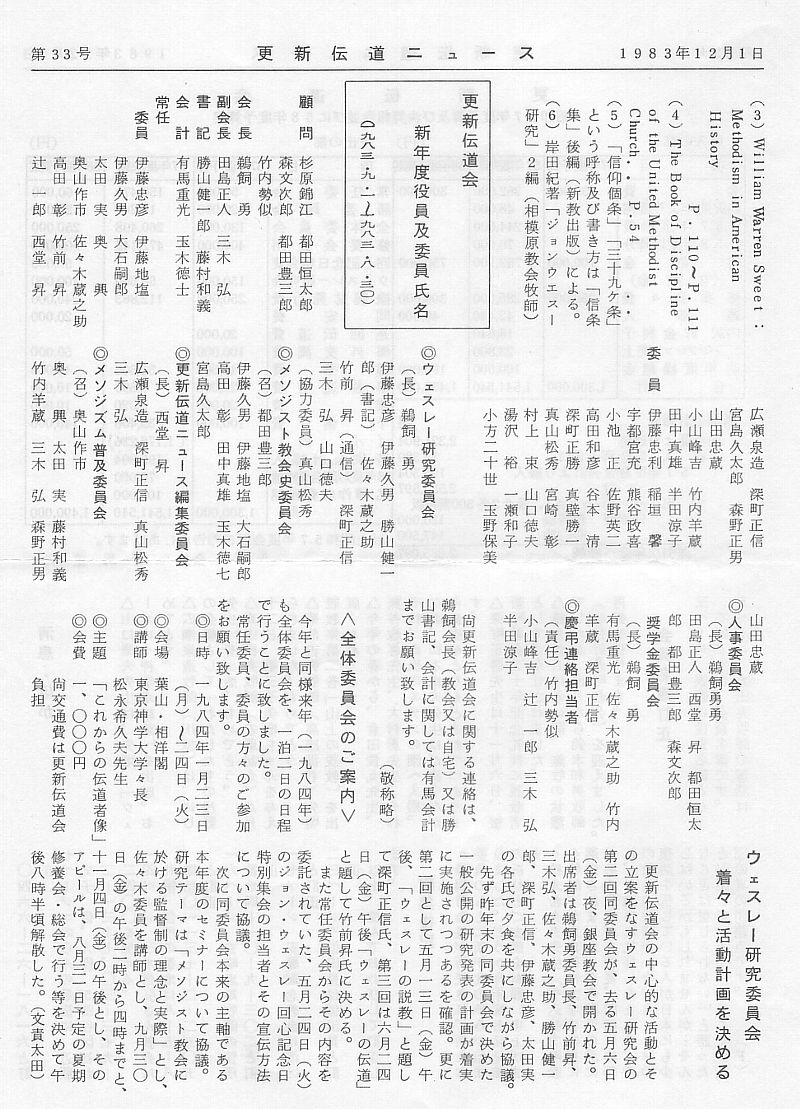 第33号
更新伝道ニュース
1983年12月1日
(3) William Warren Sweet :
Methodism in American
History
P. 110〜P. 111
(4) The Book of Discipline
of the United Methodist
Church. P. 54
(5)「信仰個条」「三十九ヶ条」
という呼称及び書き方は「信条
集」後編(新教出版)による。
(6)岸田紀著「ジョンウエスレー
研究」2編(相模原教会牧師)
更新伝道会
新年度役員及委員氏名
(一九八三・九・一〜一九八三・八・三〇)
顧問 杉原錦江 都田恒太郎
森文次郎 都田豊三郎
竹内勢似
会長 鵜飼勇
副会長 田島正人 三木弘
書記 勝山健一郎 藤村和義
会計 有馬重光 玉木徳士
常任
委員 伊藤忠彦 伊藤地塩
伊藤久男 大石嗣郎
太田実 奥興
奥山作市 佐々木蔵之助
高田彰 竹前昇
辻一郎 西堂昇
広瀬泉造 深町正信
宮島久太郎 森野正男
山田忠蔵
小山峰吉 竹内羊蔵
田中真雄 半田涼子
委員 伊藤忠利 稲垣馨
宇都宮充 熊谷政喜
小池正 佐野英二
高田和彦 谷本清
深町正勝 真壁勝一
真山松秀 宮崎彰
村上束 山口徳夫
湯沢裕 一瀬和子
小方二十世 玉野保美
◎ウェスレー研究委員会
(長)鵜飼勇
伊藤忠彦 伊藤久男 勝山健一
郎(書記) 佐々木蔵之助
竹前昇(通信)深町正信
三木弘 山口徳夫
(協力委員)真山松秀
◎メソジスト教会史委員会
(召)都田豊三郎
伊藤久男 伊藤地塩 大石嗣郎
高田彰 田中真雄 玉木徳七
宮島久太郎
◎更新伝道ニュース編集委員会
(長)西堂昇
広瀬泉造 深町正信 真山松秀
三木弘
◎メソジズム普及委員会
(召)奥山作市
奥興 太田実 藤村和義
竹内羊蔵 三木弘 森野正男
山田忠蔵
◎人事委員会
(長)鵜飼勇勇
田島正人 西堂昇 都田恒太
郎 都田豊三郎 森文次郎
奨学金委員会
(長)鵜飼勇
有馬重光 佐々木蔵之助 竹内
羊蔵 深町正信
◎慶弔連絡担当者
(責任)竹内勢似
小山峰吉 辻一郎 三木弘
半田涼子
尚更新伝道会に関する連絡は、
鵜飼会長(教会又は自宅)又は勝
山書記、会計に関しては有馬会計
までお願い致します。
(敬称略)
〈全体委員会のご案内〉
今年と同様来年(一九八四年)
も全体委員会を、一泊二日の日程
で行うことに致しました。
常任委員、委員の方々のご参加
をお願い致します。
◎日時 一九八四年一月二三日
(月)〜二四日(火)
◎会場 葉山・相洋閣
◎講師 東京神学大学々長
松永希久夫先生
◎主題 「これからの伝道者像」
◎会費 一、〇〇〇円
尚交通費は更新伝道会
負担
ウェスレー研究委員会
着々と活動計画を決める
更新伝道会の中心的な活動とそ
の立案をなすウェスレー研究会の
第二回同委員会が、去る五月六日
(金)夜、銀座教会で開かれた。
出席者は鵜飼勇委員長、竹前昇、
三木弘、佐々木蔵之助、勝山健一
郎、深町正信、伊藤忠彦、太田実
の各氏で夕食を共にしながら協議。
先ず昨年末の同委員会で決めた
一般公開の研究発表の計画が着実
に実施されつつあるを確認。更に
第二回として五月一三日(金)午
後、「ウェスレーの説教」と題し
て深町正信氏、第三回は六月二四
日(金)午後「ウェスレーの伝道」
と題して竹前昇氏に決める。
また常任委員会からその内容を
委託されていた、五月二四日(火)
のジョン・ウェスレー回心記念日
特別集会の担当者とその宣伝方法
について協議。
次に同委員会本来の主軸である
本年度のセミナーについて協議。
研究テーマは「メソジスト教会に
於ける監督制の理念と実際」とし、
佐々木委員を講師とし、九月三〇
日(金)の午後二時から四時までと、
十一月四日(金)の午後とし、その
アピールは、八月三一日予定の夏期
修養会・総会で行う等を決めて午
後八時半頃解散した。(文責太田)